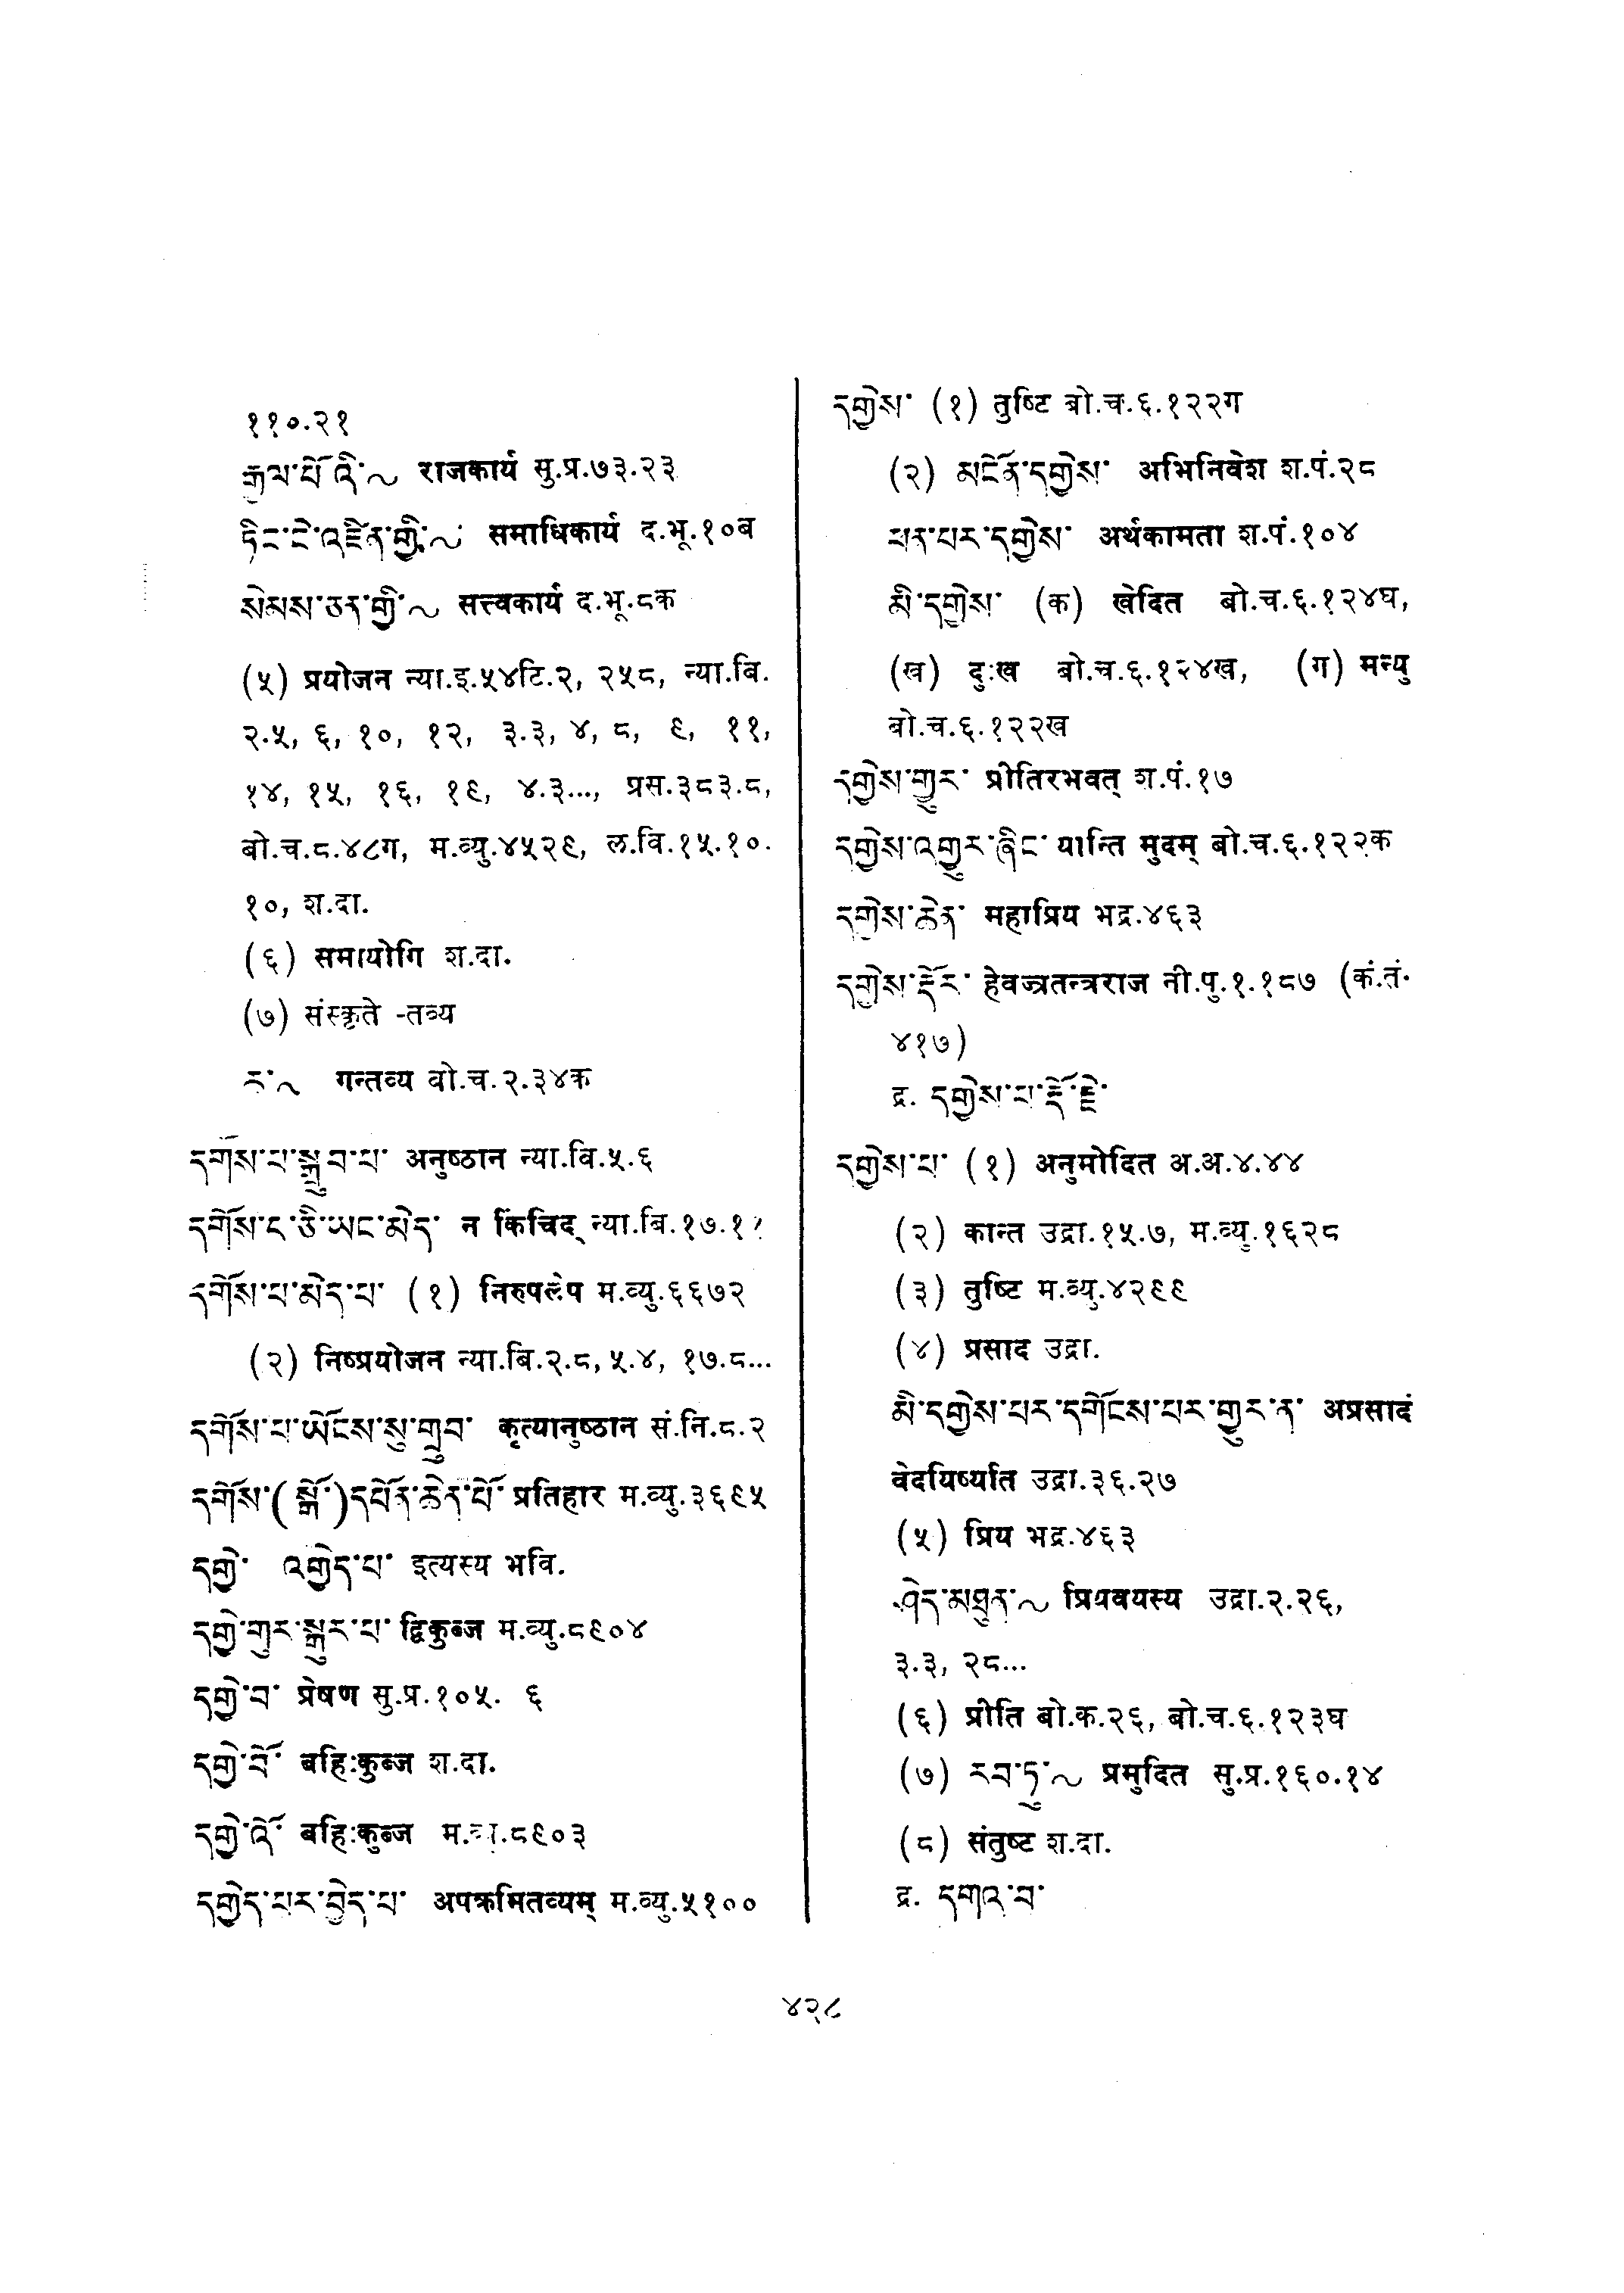 ११०.२१
རྒྱལ་པོ་འི་~ राजकार्य सु.प्र.७३.२३
ཏིང་ངེ་འཛིན་གྱི་~ समाधिकार्य द.भू.१०ब
སེམས་ཅན་གྱི་~ सत्त्वकार्य द.भू.८क
(५) प्रयोजन न्या.इ.५४टि.२, २५८, न्या.बि.
२.५, ६, १०, १२, ३.३, ४, ८, ९, ११,
१४, १५, १६, १९, ४.३..., प्रस.३८३.८,
बो.च.८.४८ग, म.व्यु.४५२९, ल.वि.१५.१०.
१०, श.दा.
(६) समायोगि श.दा.
(७) संस्कृते -तव्य
ང་~ गन्तव्य बो.च.२.३४क
དགོས་པ་སྒྲུབ་པ་ अनुष्ठान न्या.बि.५.६
དགོས་ང་ཅི་ཡང་མེད་ न किंचिद् न्या.बि.१७.१
དགོས་པ་མེད་པ་ (१) निरुपलेप म.व्यु.६६७२
(२) निष्प्रयोजन न्या.बि.२.८, ५.४, १७.८...
དགོས་པ་ཡོངས་སུ་གྲུབ་ कृत्यानुष्ठान सं.नि.८.२
དགོས་(སྒོ་)དཔོན་ཆེན་པོ་ प्रतिहार म.व्यु.३६९५
དགྱེ་ འགྱེད་པ་ इत्यस्य भवि.
དགྱེ་གུར་སྒུར་པ་ द्विकुब्ज म.व्यु.८९०४
དགྱེ་བ་ प्रेषण सु.प्र.१०५. ६
དགྱེ་བོ་ बहिःकुब्ज श.दा.
དགྱེ་འོ་ बहिःकुब्ज म.व्यु.८९०३
དགྱེད་པར་བྱེད་པ་ अपक्रमितव्यम् म.व्यु.५१००
དགྱེས་ (१) तुष्टि बो.च.६.१२२ग
(२) མངོན་དགྱེས་ अभिनिवेश श.पं.२८
ཕན་པར་དགྱེས་ अर्थकामता श.पं.१०४
མི་དགྱེས་ (क) खेदित बो.च.६.१२४घ,
(ख) दुःख बो.च.६.१२४ख, (ग) मन्यु
बो.च.६.१२२ख
དགྱེས་གྱུར་ प्रीतिरभवत् श.पं.१७
དགྱེས་འགྱུར་ཞིང་ यान्ति मुदम् बो.च.६.१२२क
དགྱེས་ཆེན་ महाप्रिय भद्र.४६३
དགྱེས་རྡོར་ हेवज्रतन्त्रराज नी.पु.१.१८७ (कं.तं.
४१७)
द्र. དགྱེས་པ་རྡོ་རྗེ་
དགྱེས་པ་ (१) अनुमोदित अ.अ.४.४४
(२) कान्त उद्रा.१५.७, म.व्यु.१६२८
(३) तुष्टि म.व्यु.४२९९
(४) प्रसाद उद्रा.
མི་དགྱེས་པར་དགོངས་པར་གྱུར་ན་ अप्रसादं
वेदयिष्यति उद्रा.३६.२७
(५) प्रिय भद्र.४६३
ཤེད་མཐུན་~ प्रियवयस्य उद्रा.२.२६,
३.३, २८...
(६) प्रीति बो.क.२६, बो.च.६.१२३घ
(७) རབ་ཏུ་~ प्रमुदित सु.प्र.१६०.१४
(८) संतुष्ट श.दा.
द्र. དགའ་བ་
४२८